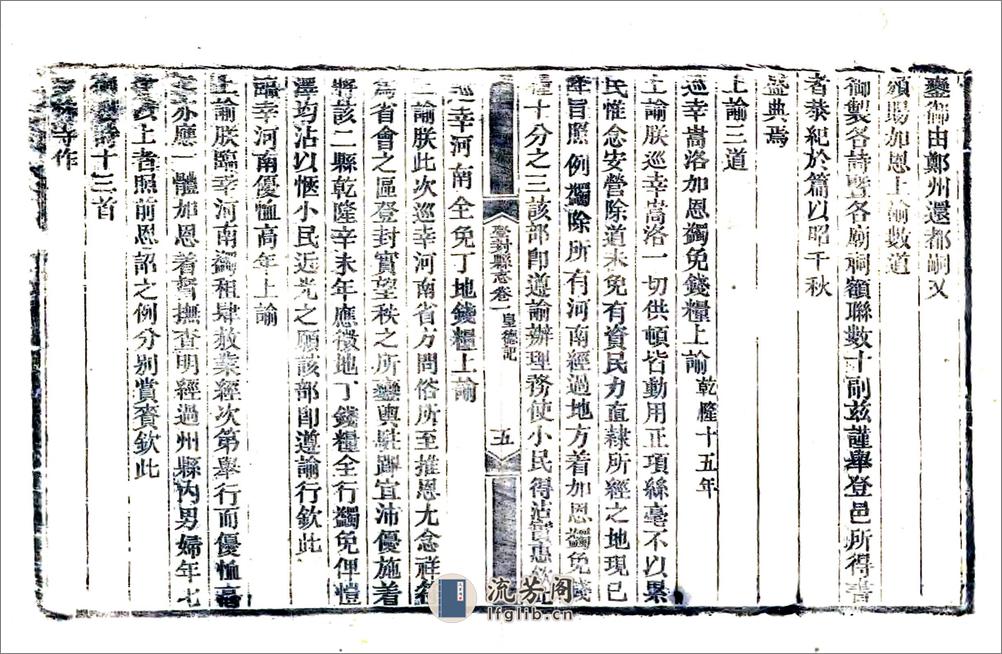 鑾御由鄭州還都嗣又
頒賜加恩上諭數道
御製各詩暨各廟祠額聯數十副茲謹舉登邑所得書
者恭紀於篇以昭千秋
盛典焉
上諭三道
巡幸嵩洛加恩蠲免錢糧上諭 乾隆十五年
上諭朕巡幸嵩洛一切供頓皆動用正項絲毫不以累
民惟念安營除道未免有資民力直隸所經之地現已
降旨照例蠲除所有河南經過地方着加恩蠲免錢
糧十分之三該部卽遵諭辦理務使小民得沾實惠
登封縣志卷一 皇德記 五
巡幸河南全免丁地錢糧上諭
上諭朕此次巡幸河南省方問俗所至推恩尤念祥符
爲省會之區登封實望秩之所鑾輿駐蹕宜沛優施着
將該二縣乾隆辛未年應徵地丁錢糧全行蠲免俾愷
澤均沾以愜小民近光之願該部卽遵諭行欽此
臨幸河南優恤高年上諭
上諭朕臨幸河南蠲租肆赦業經次第舉行而優恤高
年亦應一體加恩着督撫查明經過州縣內男婦年七
十以上者照前恩詔之例分別賞賚欽此
御製詩十三首
等作
流芳阁
lfglib.cn